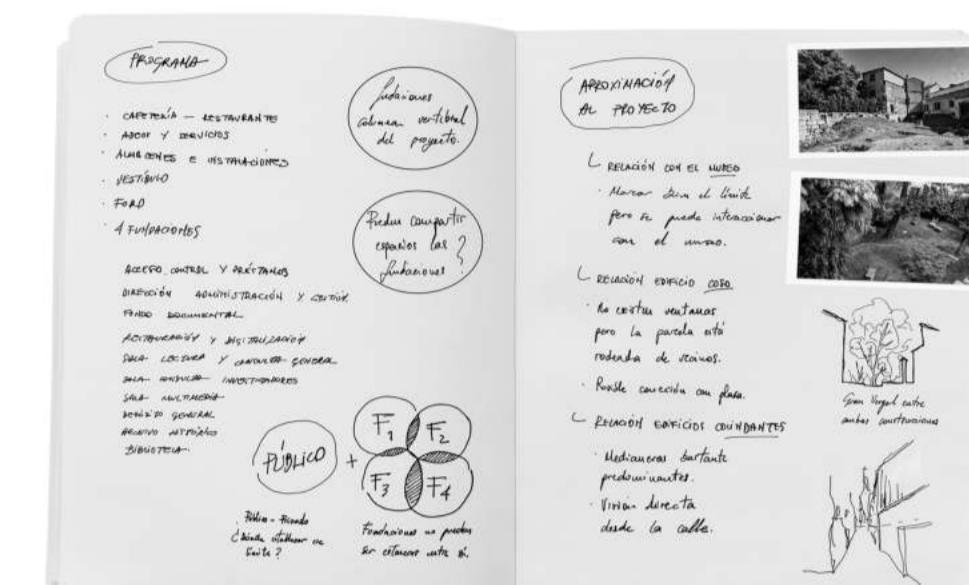 PROGRAMA
· CAFETERÍA — RESTAURANTE
· ASEOS Y SERVICIOS
· ALMACENES E INSTALACIONES
· VESTÍBULO
· FORO
· 4 FUNDACIONES
ACCESO, CONTROL Y PRÉSTAMOS
DIRECCIÓN ADMINISTRACIÓN Y GESTIÓN
FONDO DOCUMENTAL
RESTAURACIÓN Y DIGITALIZACIÓN
SALA LECTURA Y CONSULTA GENERAL
SALA CONSULTA INVESTIGADORES
SALA MULTIMEDIA
DEPÓSITO GENERAL
ARCHIVO HISTÓRICO
BIBLIOTECA
fundaciones
columna vertebral
del proyecto.
Pueden compartir
espacios las
fundaciones?
PÚBLICO
+
F1 F2
F3 F4
Público - Privado
¿Dónde establecer
límite?
Fundaciones no pueden
ser estancas entre sí.
APROXIMACIÓN
AL PROYECTO
RELACIÓN CON EL MUSEO
· Marcar bien el límite
pero se puede interaccionar
con el museo.
RELACIÓN EDIFICIO COSO
· No existen ventanas
pero la parcela está
rodeada de vecinos.
· Posible conexión con plaza.
RELACIÓN EDIFICIOS COLINDANTES
· Medianeras bastante
predominantes.
· Visión directa
desde la calle.
Gran Vergel entre
ambas construcciones